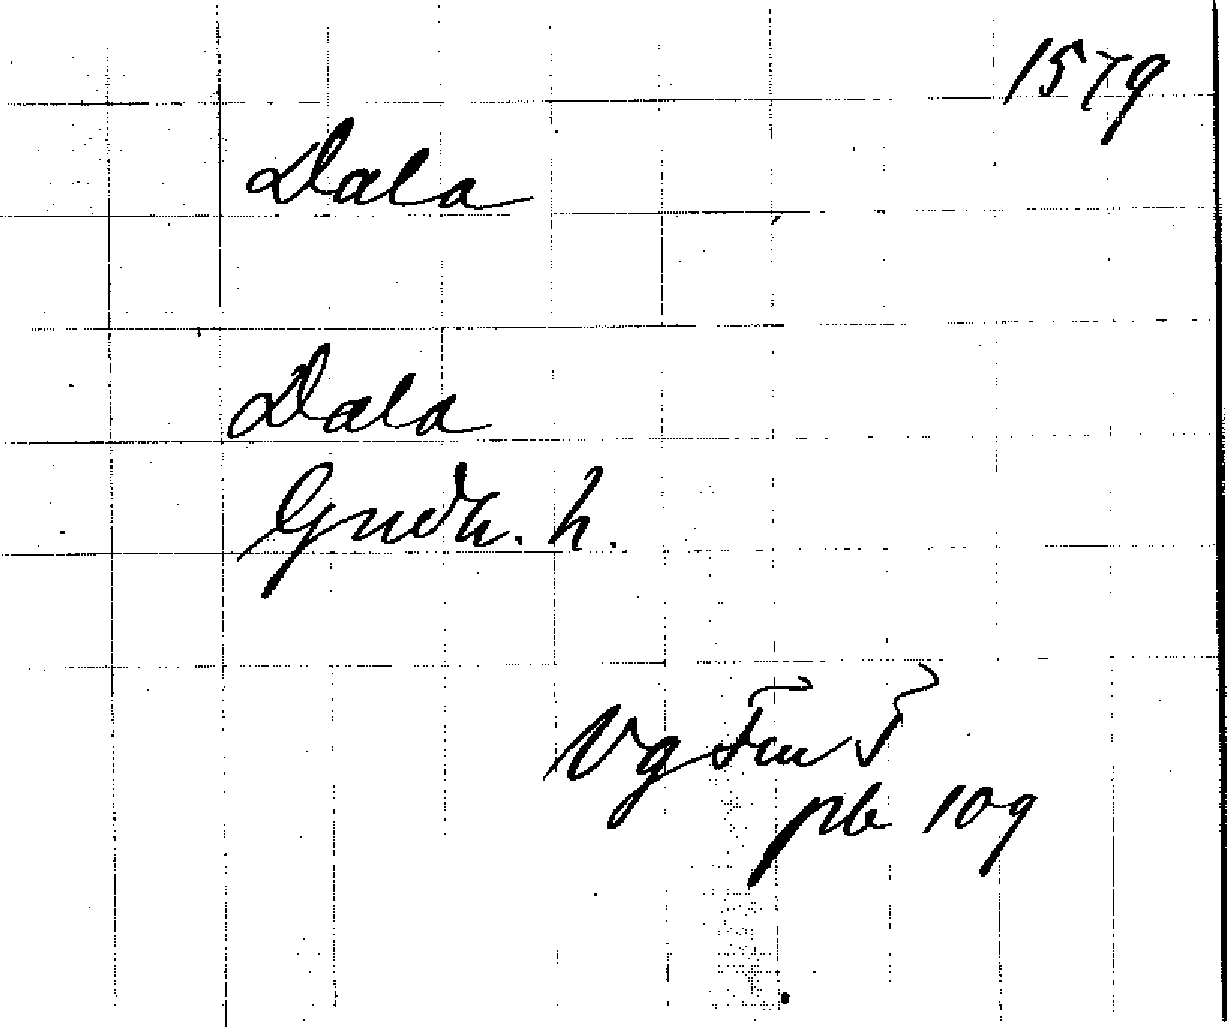 1579
Dala
Dala
Gudh. h.
Vg Fm I
pb 109